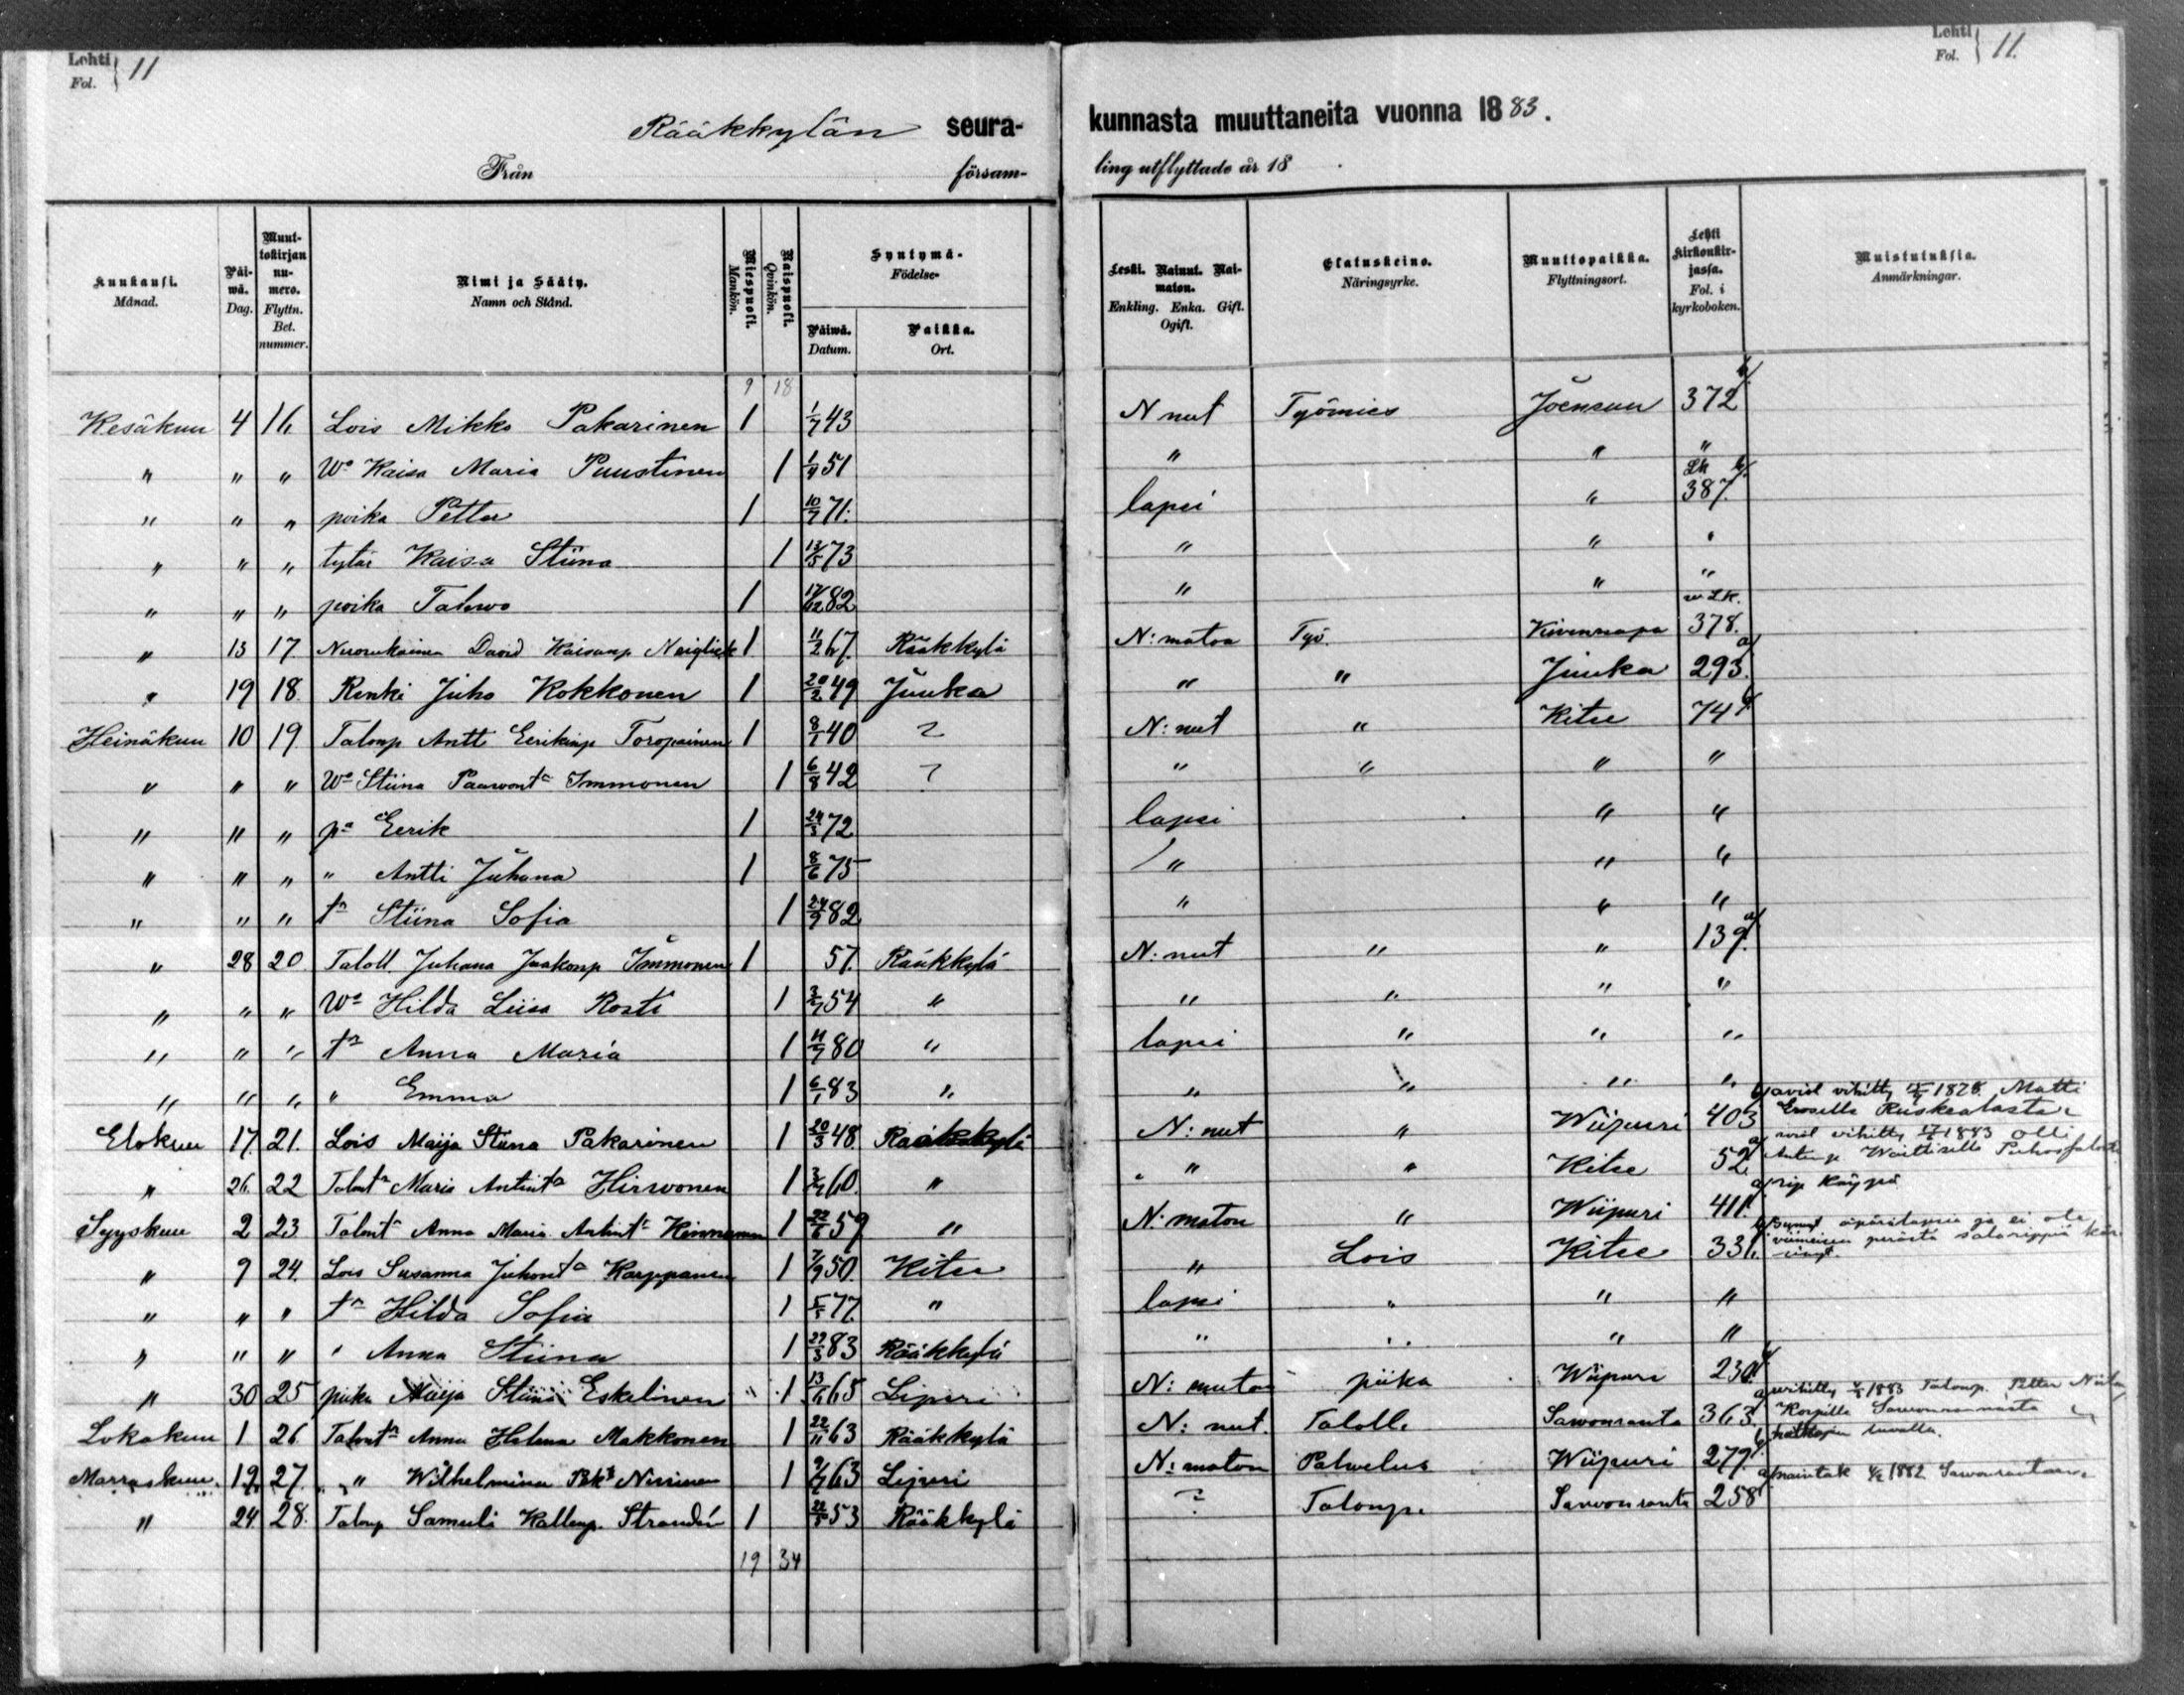 Lehti Fol. } 11
Lehti Fol. } 11.
Rääkkylän seura- kunnasta muuttaneita vuonna 1883.
Från församling utflyttade år 18 .
Kuukausi. Månad. | Päiwä. Dag. | Muuttokirjan numero. Flyttn. Bet. nummer. | Nimi ja Sääty. Namn och Stånd. | Miespuoli. Mankön. | Naispuoli. Qvinkön. | Syntymä- Födelse- Päiwä. Datum. | Paikka. Ort. | Leski. Nainut. Naimaton. Enkling. Enka. Gift. Ogift. | Elatuskeino. Näringsyrke. | Muuttopaikka. Flyttningsort. | Lehti Kirkonkirjassa. Fol. i kyrkoboken. | Muistutuksia. Anmärkningar.
9 18
Kesäkuu 4 16 Lois Mikko Pakarinen 1 1/7 43 N nut Työmies Joensuu 372 b/
" " " Wo Kaisa Maria Puustinen 1 1/9 51 " " "
" " " poika Petter 1 10/7 71. lapsi " Lk 387. b/
" " " tytär Kaisa Stiina 1 13/5 73 " " "
" " " poika Tahwo 1 17/12 82 " " "
" 13 17. David Kaisanp Neiglick 1 11/2 67. Rääkkylä N:maton Työ. Kivennapa w Lk. 378.
" 19 18. Renki Juho Kokkonen 1 20/2 49 Juuka " " Juuka 293. a/
Heinäkuu 10 19. Talonp Antti Eerikinp Toropainen 1 8/1 40 ? N:nut " Kitee 74 b/
" " " Wo Stiina Paawont. Immonen 1 6/8 42 ? " " " "
" " " pa Eerik 1 24/3 72 lapsi " "
" " " " Antti Juhana 1 8/6 75 " " "
" " " tr Stiina Sofia 1 24/9 82 " " "
" 28 20. Taloll Juhana Jaakonp Immonen 1 57. Rääkkylä N:nut " " 139. a/
" " " Wo Hilda Liisa Rosti 1 3/7 54 " " " " "
" " " tr Anna Maria 1 11/7 80 " lapsi " " "
" " " " Emma 1 6/1 83 " " " " "
Elokuu 17. 21. Lois Maija Stiina Pakarinen 1 20/3 48. Rääkkylä N:nut " Wiipuri 403 b/ aviol vihitty 1878 Matti Eroselle Ruskealasta
" 26. 22 Talont. Maria Antint. Hirwonen 1 3/7 60. " " " Kitee 52. a/ aviol vihitty 1883 Olli Antinp Waittiselle
Syyskuu 2 23. Talont. Anna Maria Antint. Hinnunen 1 22/6 59 " N:maton " Wiipuri 411. a/ rip käypä
" 9 24. Lois Susanna Juhont. Karppanen 1 7/9 50. Kitee " Lois Kitee 331. b/ synnyt. äpärälapsia ja ei ole viimeisen perästä salarippiä
" " " tr Hilda Sofia 1 5/5 77. " lapsi " " "
" " " " Anna Stiina 1 29/3 83 Rääkkylä " " " "
" 30 25 piika Maija Stiina Eskelinen " 1 13/6 65 Liperi N:maton piika Wiipuri 230. b/
Lokakuu 1 26. Talont. Anna Helena Makkonen 1 22/11 63 Rääkkylä N:nut. Taloll. Sawonranta 363. a/ vihitty 1883 Talonp. Petter Korpille Sawonrannasta luvalla.
Marraskuu 19. 27. " " Wilhelmina Nissinen 1 9/7 63 Liperi N:maton Palwelus Wiipuri 279. b/
" 24. 28. Talonp Samuli Kallenp. Strandén 1 22/5 53 Rääkkylä ? Talonp. Sawonranta 258 a/ 1882 Sawonrantaan
19 34